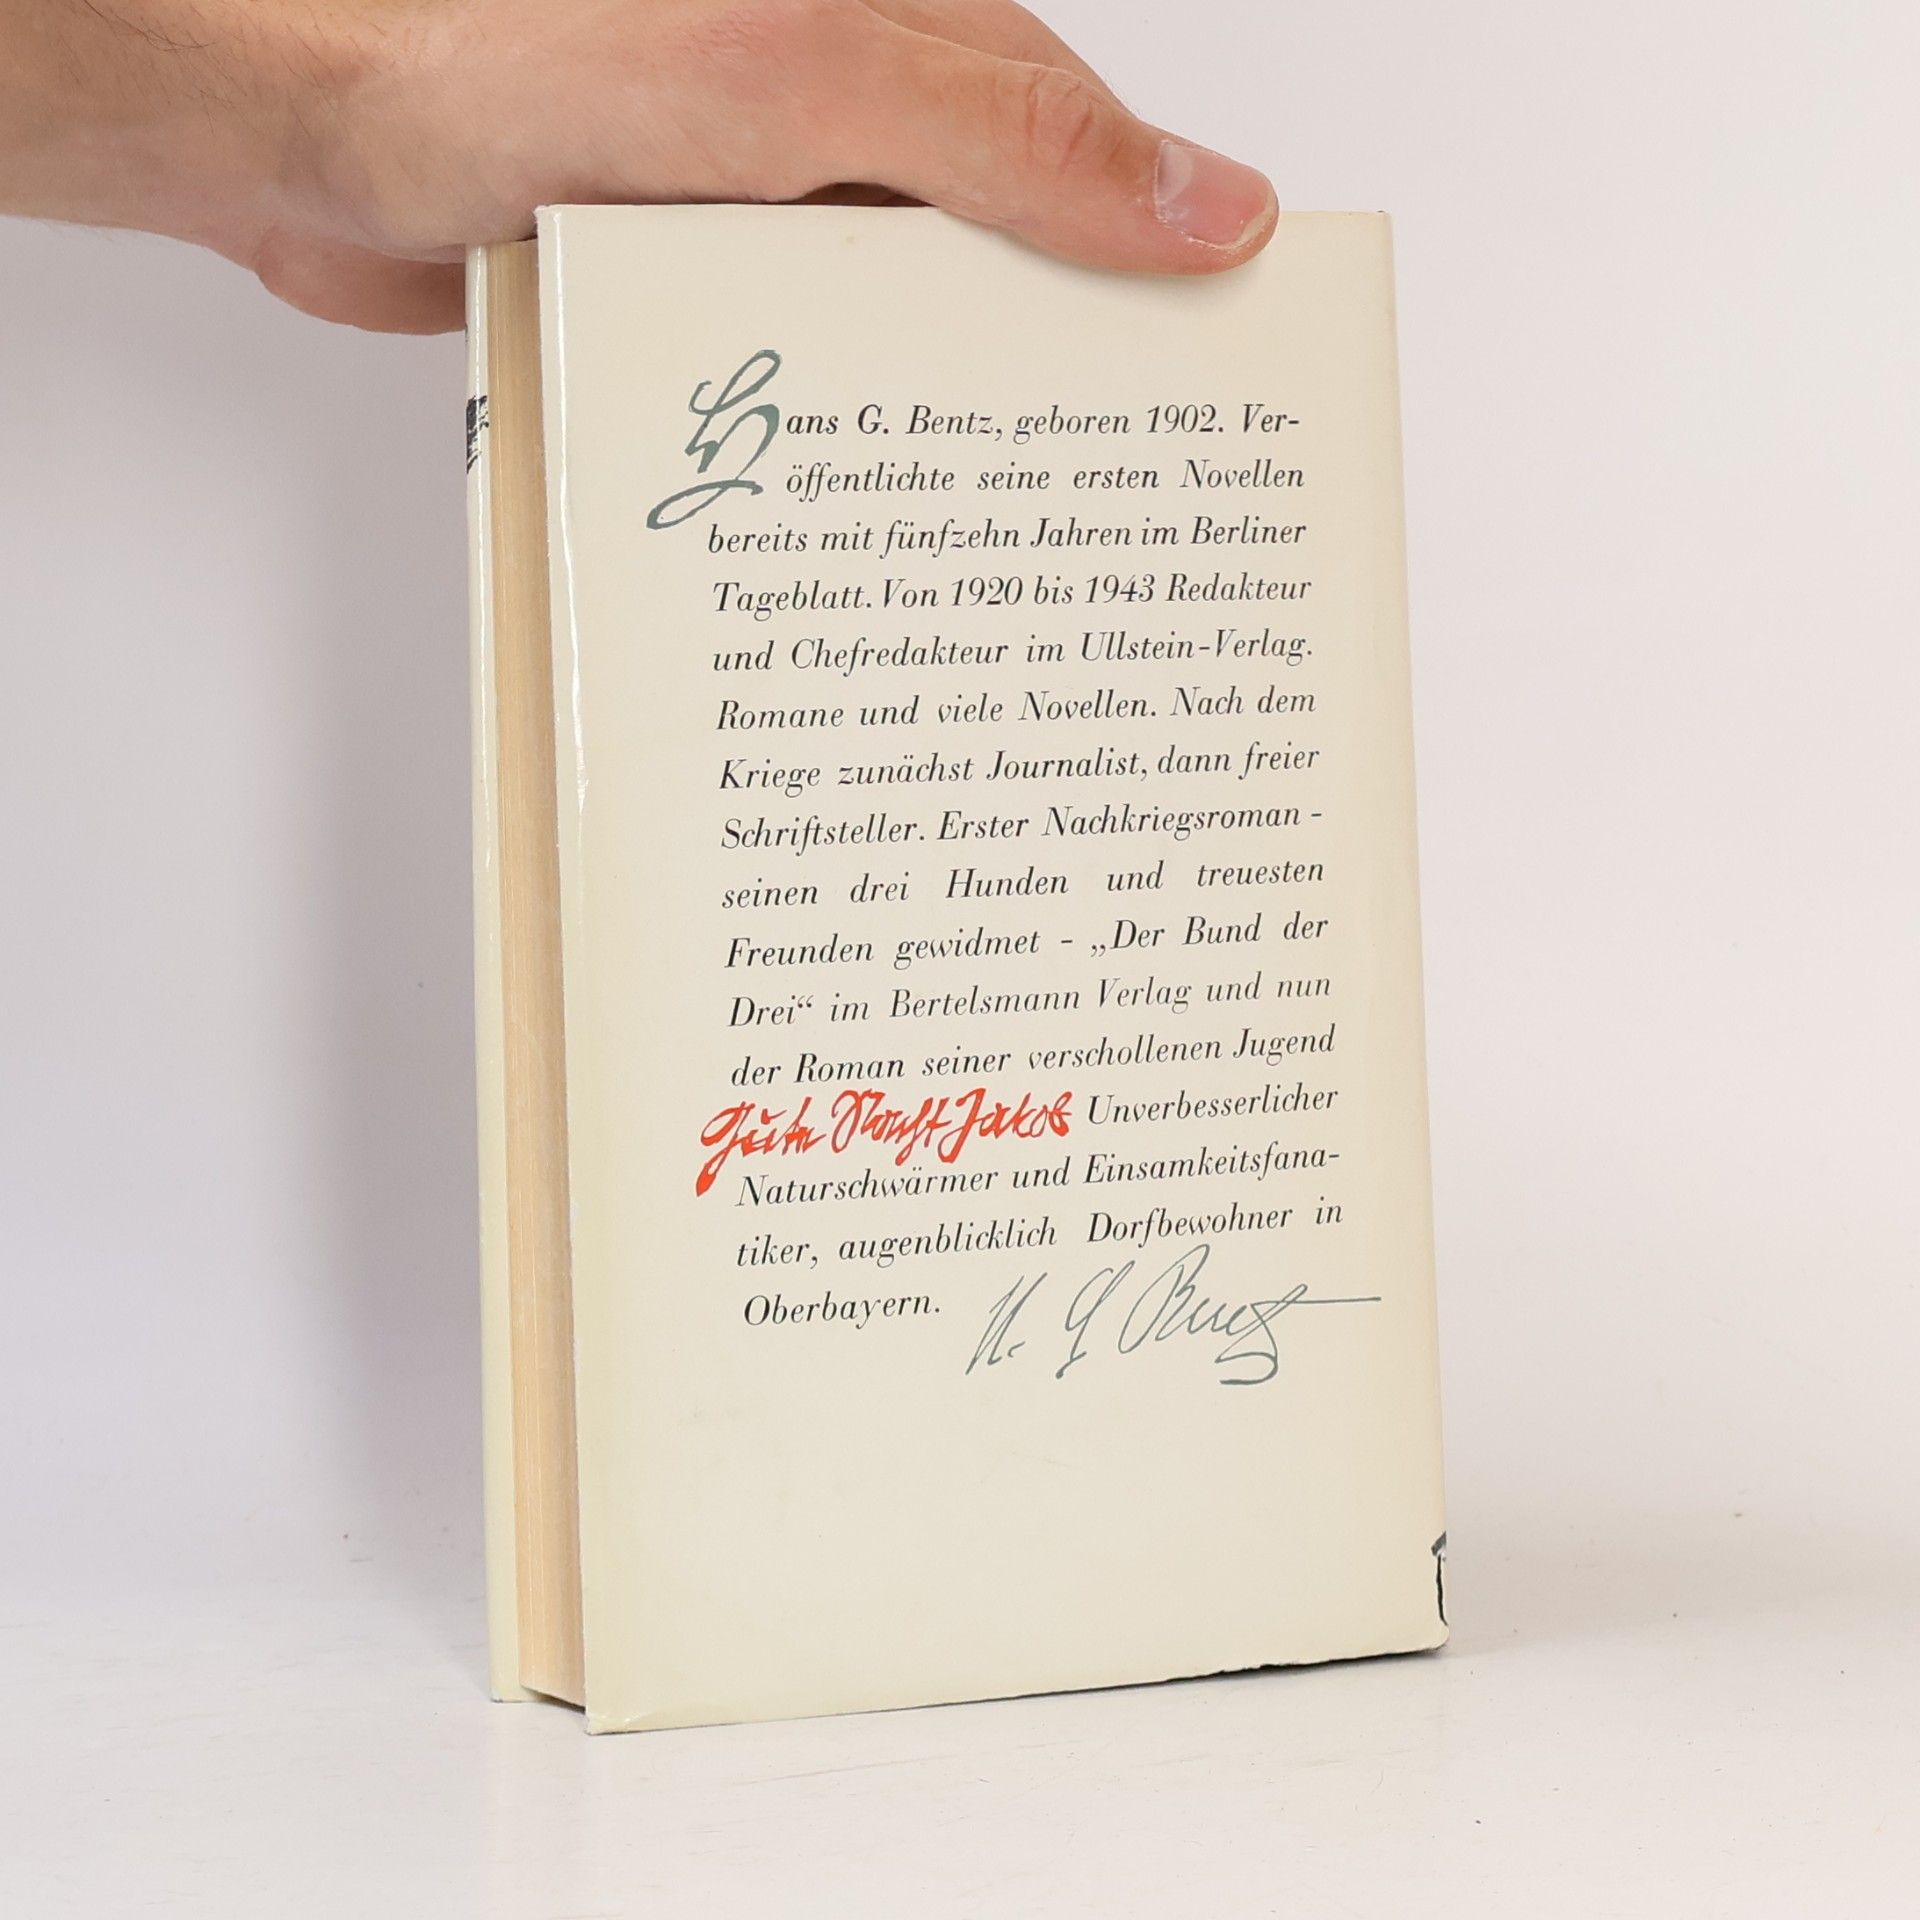 Hans G. Bentz, geboren 1902. Ver-
öffentlichte seine ersten Novellen
bereits mit fünfzehn Jahren im Berliner
Tageblatt. Von 1920 bis 1943 Redakteur
und Chefredakteur im Ullstein-Verlag.
Romane und viele Novellen. Nach dem
Kriege zunächst Journalist, dann freier
Schriftsteller. Erster Nachkriegsroman -
seinen drei Hunden und treuesten
Freunden gewidmet - „Der Bund der
Drei“ im Bertelsmann Verlag und nun
der Roman seiner verschollenen Jugend
Gute Nacht Jakob Unverbesserlicher
Naturschwärmer und Einsamkeitsfana-
tiker, augenblicklich Dorfbewohner in
Oberbayern. H. G Bentz